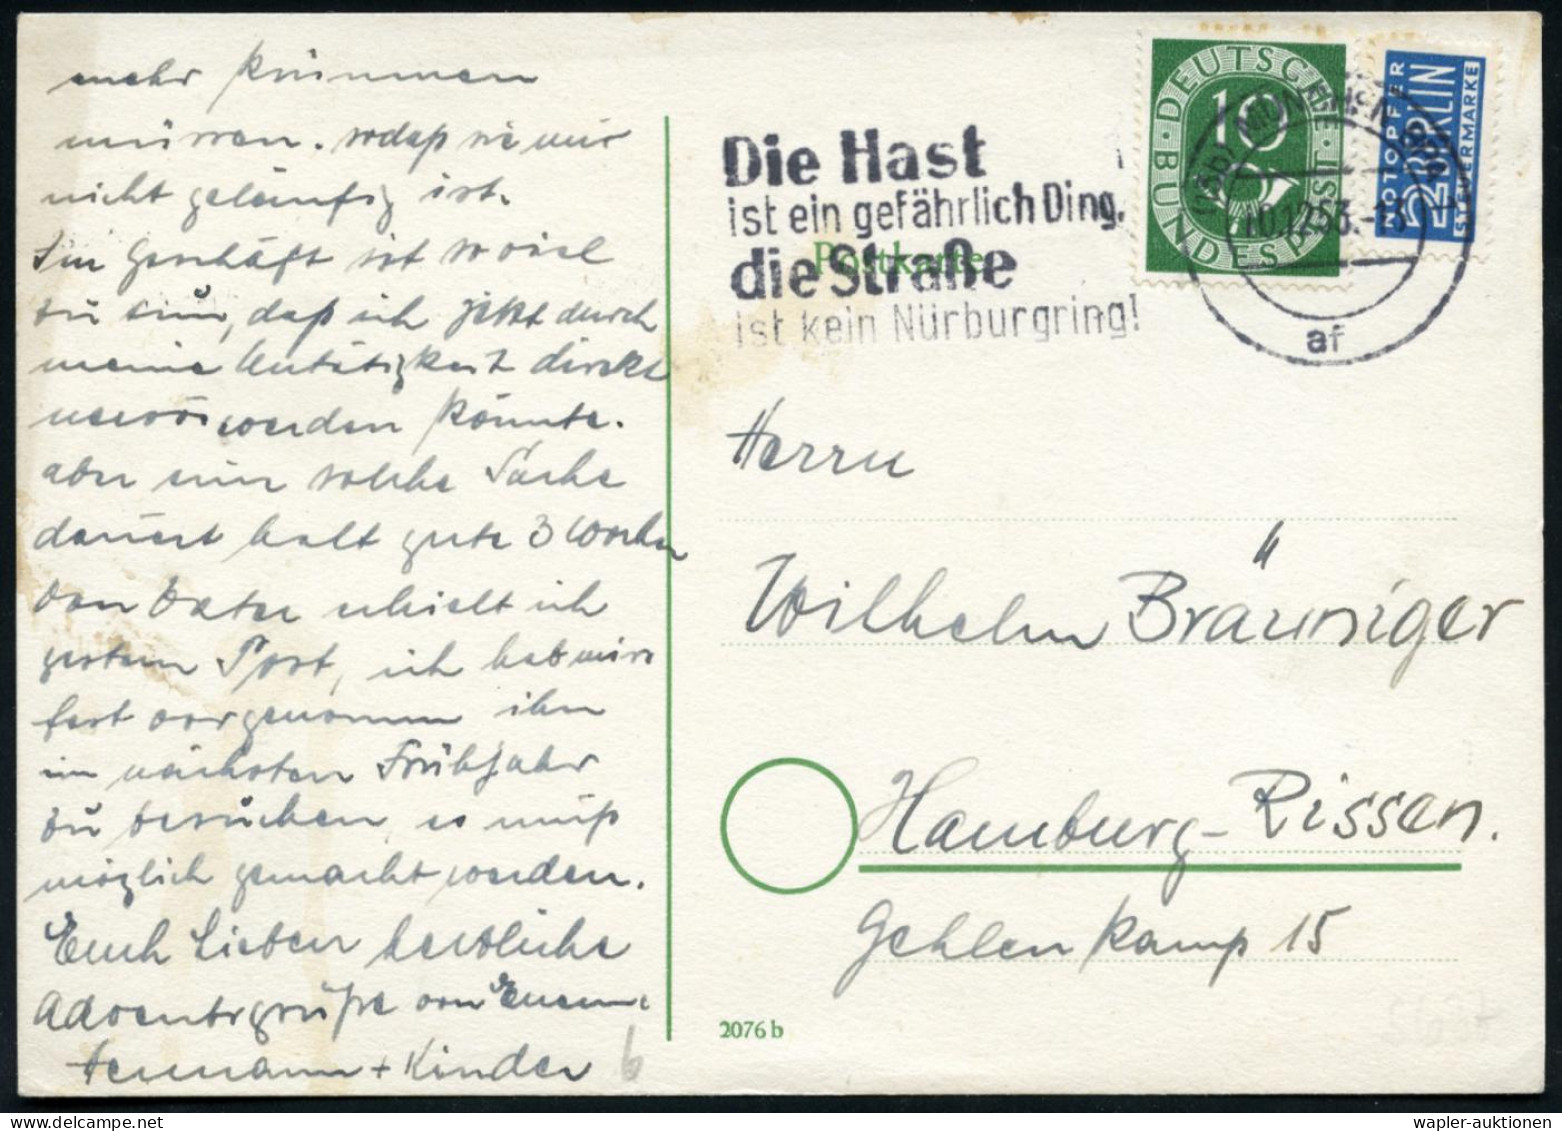 mehr kümmern
müssen. sodaß sie nur
nicht geläufig ist.
Im Geschäft ist soviel
zu tun, daß ich jetzt durch
meine Untätigkeit direkt
nervös werden könnte.
aber eine solche Sache
dauert halt gute 3 Wochen
Von Vater erhielt ich
gestern Post, ich hab mirs
fest vorgenommen ihn
im nächsten Frühjahr
zu besuchen, es muß
möglich gemacht werden.
Euch Lieben herzliche
Adventsgrüße von Euerm
Hermann + Kinder
6
Die Hast
ist ein gefährlich Ding,
die Straße
ist kein Nürburgring!
Postkarte
DEUTSCHE BUNDESPOST
10
MÜNCHEN
10.12.53.-13
af
NOTOPFER
2 BERLIN
STEUERMARKE
Herrn
Wilhelm Bräuniger
Hamburg-Rissen.
Gehlenkamp 15
2076 b
wapler-auktionen